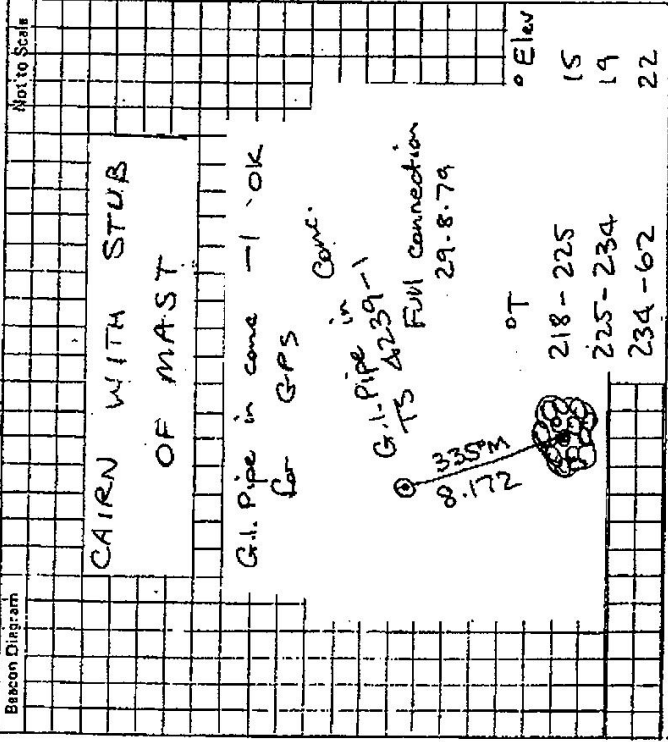 Beacon Diagram
Not to Scale
CAIRN WITH STUB
OF MAST
G.I. Pipe in conc -1 OK
for GPS
G.I. Pipe in Conc.
TS 4239-1
Full connection
29.8.79
335°M
8.172
°T
° Elev
218-225 15
225-234 19
234-62 22